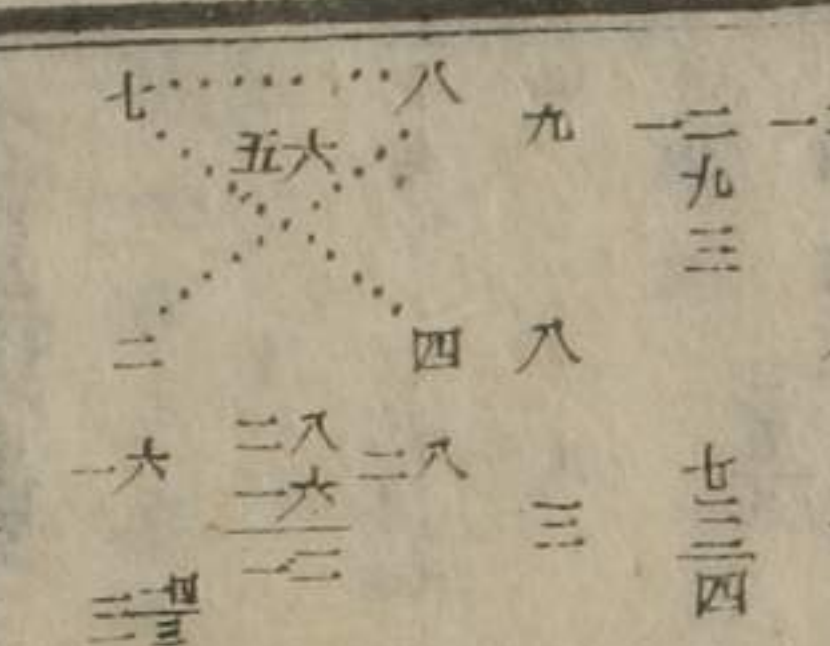 七 八 九 一二 一
五六 九
三
二 四 八
一六 二八 二八 七
一六 三 三
一二 四